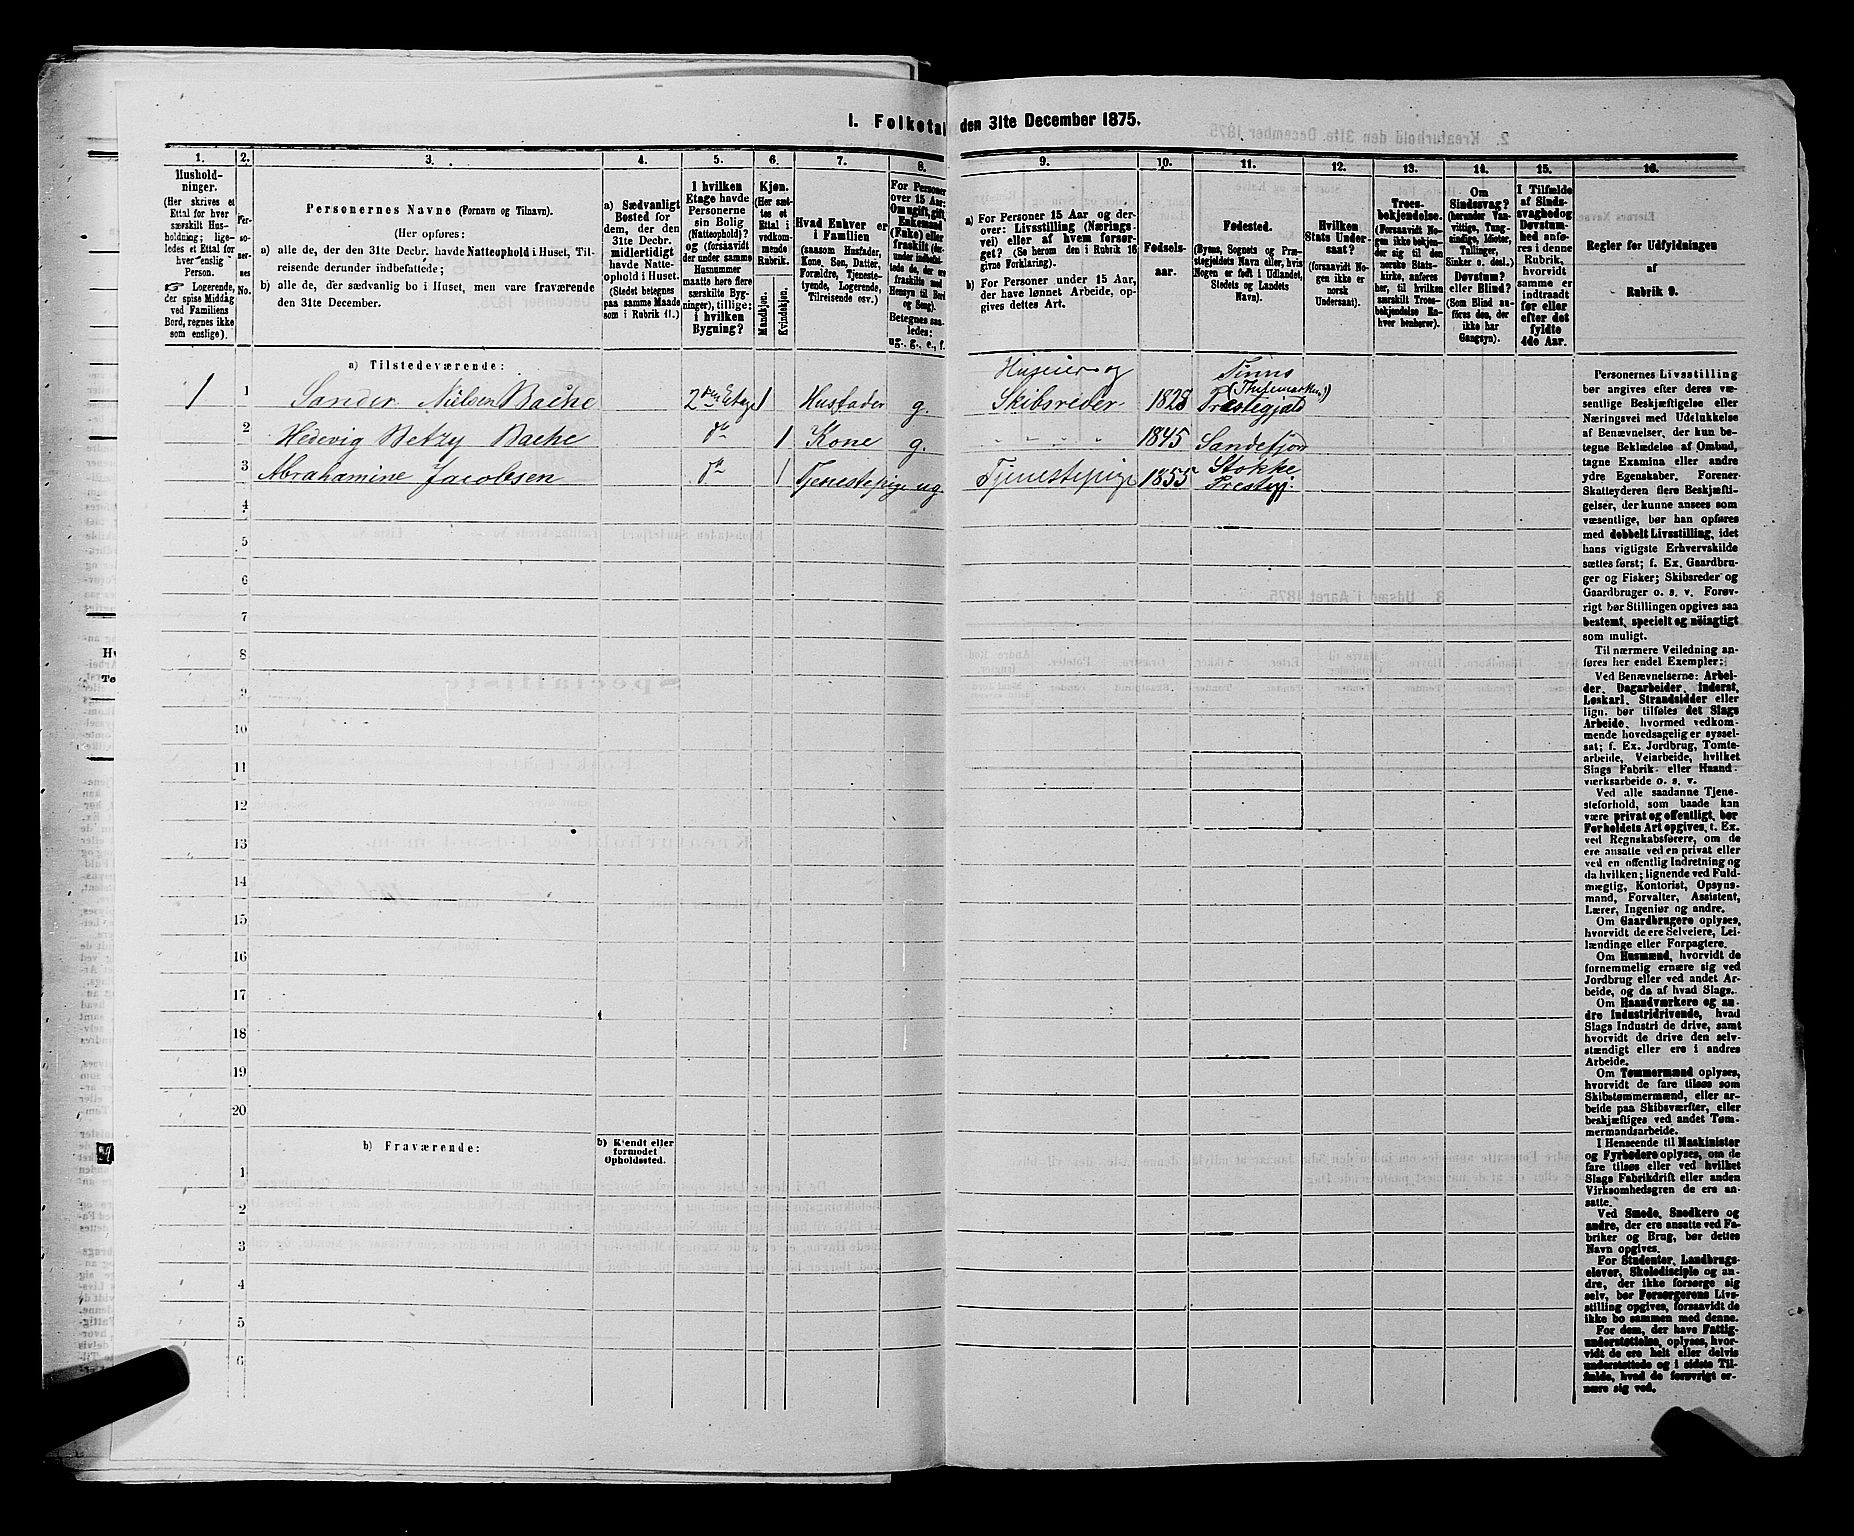 1. Folketal den 31te December 1875.
1.
2.
3.
4.
5.
6.
7.
8.
9.
10.
11.
12.
13.
14.
15.
16.
Hushold-
ninger.
(Her skrives et
Ettal for hver
særskilt Hus-
holdning; lige-
ledes et Ettal for
hver enslig
Person.
☞ Logerende,
der spise Middag
ved Familiens
Bord, regnes ikke
som enslige).
Per-
so-
ner-
nes
No.
Personernes Navne (Fornavn og Tilnavn).
(Her opføres:
a) alle de, der den 31te Decbr. havde Natteophold i Huset, Til-
reisende derunder indbefattede;
b) alle de, der sædvanlig bo i Huset, men vare fraværende
den 31te December.
a) Sædvanligt
Bosted for
dem, der den
31te Decbr.
midlertidigt
havde Natte-
ophold i Huset.
(Stedet betegnes
paa samme Maade
som i Rubrik 11.)
I hvilken
Etage havde
Personerne
sin Bolig
(Natteophold)?
og (forsaavidt
der under samme
Husnummer
maatte høre flere
særskilte Byg-
ninger), tillige:
i hvilken
Bygning?
Kjøn.
(Her sæt-
tes et
Ettal i
vedkom-
mende
Rubrik.
Mandkjøn.
Kvindekjøn.
Hvad Enhver er
i Familien
(saasom Husfader,
Kone, Søn, Datter,
Forældre, Tjeneste-
tyende, Logerende,
Tilreisende osv.)
For Personer
over 15 Aar:
Om ugift, gift,
Enkemand
(Enke) eller
fraskilt
Betegnes saa-
ledes:
ug., g., e., f.
a) For Personer 15 Aar og der-
over: Livsstilling (Nærings-
vei) eller af hvem forsør-
get? (Se herom den i Rubrik 16
givne Forklaring).
b) For Personer under 15 Aar,
der have lønnet Arbeide, op-
gives dettes Art.
Fødsels-
aar.
Fødested.
(Byens, Sognets og Præ-
stegjeldets Navn eller, hvis
Nogen er født i Udlandet,
Stedets og Landets
Navn).
Hvilken
Stats Under-
saat?
(forsaavidt No-
gen ikke er
norsk
Undersaat).
Troes-
bekjendelse.
(Forsaavidt No-
gen ikke bekjen-
der sig til den
norske Stats-
kirke, anføres
her, til hvilken
særskilt Troes-
bekjendelse En-
hver henhører).
Om
Sindssvag?
(herunder Van-
vittige, Tung-
sindige, Idioter,
Tullinger,
Sinker o. desl.)
Døvstum?
eller Blind?
(Som Blind an-
føres den, der
ikke har
Gangsyn).
I Tilfælde
af Sinds-
svaghed og
Døvstum-
hed anfø-
res i denne
Rubrik,
hvorvidt
samme er
indtraadt
før eller
efter det
fyldte
4de Aar.
Regler for Udfyldningen
af
Rubrik 9.
a) Tilstedeværende:
1 1 Sander Nilsen Bache 2den Etage 1 Husfader g. Huseier og Skibsreder 1828 Tinns (Thelemarken) Prestegjeld
2 Hedevig Betzy Bache do 1 Kone g. " " " " 1845 Sandefjord
3 Abrahamine Jacobsen do 1 Tjenestepige ug. Tjenestepige 1855 Stokke Prestegj.
4
5
6
7
8
9
10
11
12
13
14
15
16
17
18
19
20
b) Fraværende:
b) Kjendt eller
formodet
Opholdssted.
1
2
3
4
5
6
Personernes Livsstilling
bør angives efter deres væ-
sentlige Beskjæftigelse eller
Næringsvei med Udelukkelse
af Benævnelser, der kun be-
tegne Beklædelse af Ombud,
tagne Examina eller andre
ydre Egenskaber. Forener
Skatteyderen flere Beskjæfti-
gelser, der kunne ansees som
væsentlige, bør han opføres
med dobbelt Livsstilling, idet
hans vigtigste Erhvervskilde
sættes først; f. Ex. Gaardbru-
ger og Fisker; Skibsreder og
Gaardbruger o. s. v. Forøv-
rigt bør Stillingen opgives saa
bestemt, specielt og nøiagtigt
som muligt.
Til nærmere Veiledning an-
føres her endel Exempler:
Ved Benævnelserne: Arbei-
der, Dagarbeider, Inderst,
Løskarl, Strandsidder eller
lign. bør tilføies det Slags
Arbeide, hvormed vedkom-
mende hovedsagelig er syssel-
sat; f. Ex. Jordbrug, Tomte-
arbeide, Veiarbeide, hvilket
Slags Fabrik- eller Haand-
værksarbeide o. s. v.
Ved alle saadanne Tjene-
steforhold, som baade kan
være privat og offentligt, bør
Forholdets Art opgives, t. Ex.
ved Regnskabsførere, om de
ere ansatte ved en privat eller
ved en offentlig Indretning og
da hvilken; lignende ved Fuld-
mægtig, Kontorist, Opsyns-
mand, Forvalter, Assistent,
Lærer, Ingeniør og andre.
Om Gaardbrugere oplyses,
hvorvidt de ere Selveiere, Lei-
lændinge eller Forpagtere.
Om Husmænd, hvorvidt de
fornemmelig ernære sig ved
Jordbrug eller ved andet Ar-
beide, og da af hvad Slags.
Om Haandværkere og an-
dre Industridrivende, hvad
Slags Industri de drive, samt
hvorvidt de drive den selv-
stændigt eller ere i andres
Arbeide.
Om Tømmermænd oplyses,
hvorvidt de fare tilsøs som
Skibstømmermænd, eller ar-
beide paa Skibsværfter, eller
beskjæftiges ved andet Tøm-
mermandsarbeide.
I Henseende til Maskinister
og Fyrbødere oplyses, om de
fare tilsøs eller ved hvilket
Slags Fabrikdrift eller anden
Virksomhedsgren de ere an-
satte.
Ved Smede, Snedkere og
andre, der ere ansatte ved Fa-
briker og Brug, bør dettes
Navn opgives.
For Studenter, Landbrugs-
elever, Skoledisciple og an-
dre, der ikke forsørge sig
selv, bør Forsørgerens Livs-
stilling opgives, forsaavidt de
ikke bo sammen med denne.
For dem, der have Fattig-
understøttelse, oplyses, hvor-
vidt de ere helt eller delvis
understøttede og i sidste Til-
fælde, hvad de forøvrigt er-
nære sig ved.